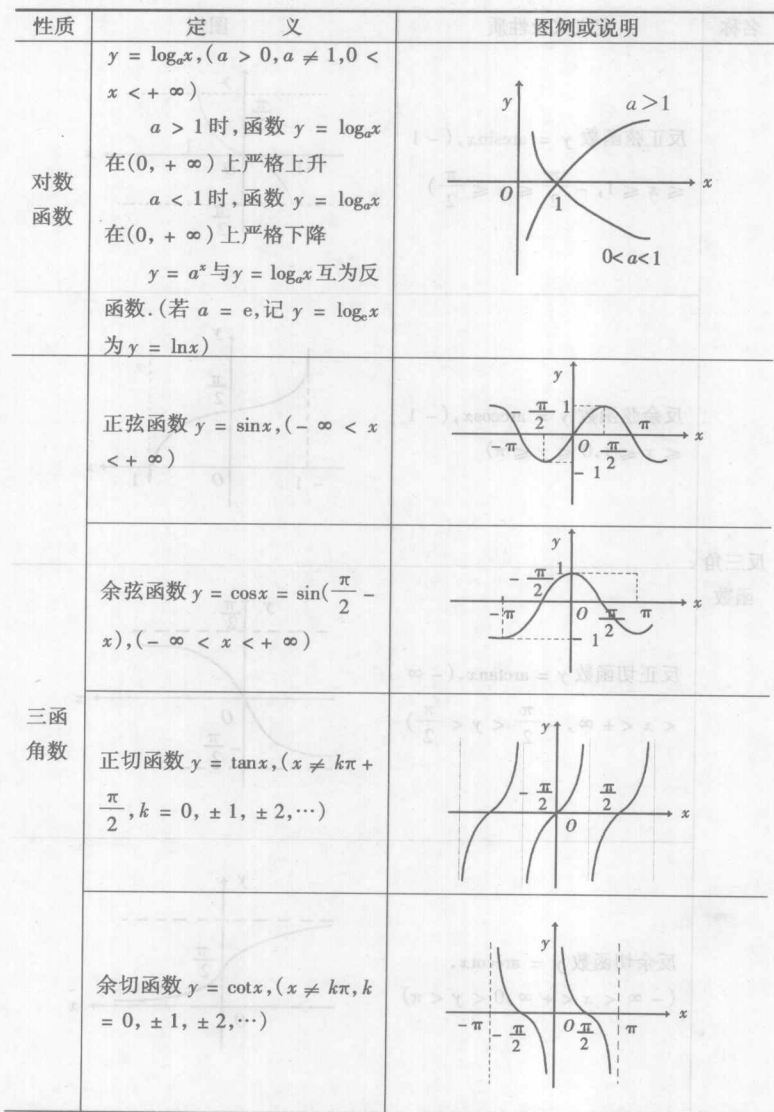 性质 定 义 图例或说明
对数
函数
y = logₐx,(a > 0,a ≠ 1,0 <
x < + ∞)
a > 1 时,函数 y = logₐx
在(0, + ∞)上严格上升
a < 1 时,函数 y = logₐx
在(0, + ∞)上严格下降
y = aˣ 与 y = logₐx 互为反
函数.(若 a = e,记 y = logₑx
为 y = lnx)
y
a>1
O 1 x
0<a<1
三函
角数
正弦函数 y = sinx,(- ∞ < x
< + ∞)
y
-π -π/2 1 O π/2 π x
-1
余弦函数 y = cosx = sin(π/2 -
x),(- ∞ < x < + ∞)
y
-π -π/2 1 O π/2 π x
-1
正切函数 y = tanx,(x ≠ kπ +
π/2,k = 0, ± 1, ± 2,…)
y
-π/2 π/2 x
O
余切函数 y = cotx,(x ≠ kπ,k
= 0, ± 1, ± 2,…)
y
-π -π/2 O π/2 π x